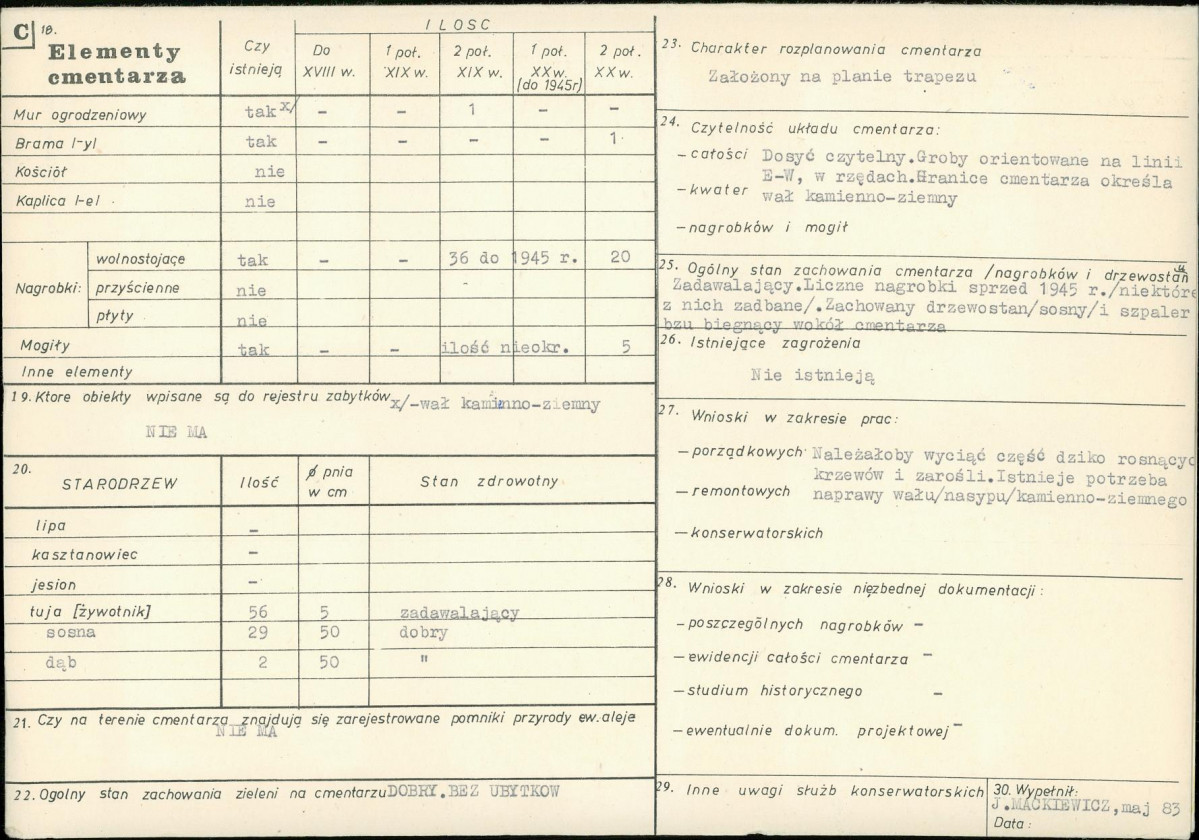 C 18. Elementy cmentarza
Czy istnieją
ILOSC
Do XVIII w.
1 poł. XIX w.
2 poł. XIX w.
1 poł. XX w. (do 1945r)
2 poł. XX w.
Mur ogrodzeniowy tak x/ – – 1 – –
Brama /-y/ tak – – – – 1
Kościół nie
Kaplica /-e/ nie
Nagrobki:
wolnostojące tak – – 36 do 1945 r. 20
przyścienne nie -
płyty nie
Mogiły tak – – ilość nieokr. 5
Inne elementy
19. Ktore obiekty wpisane są do rejestru zabytków x/-wał kamienno-ziemny
NIE MA
20. STARODRZEW Ilość ø pnia w cm Stan zdrowotny
lipa –
kasztanowiec –
jesion –
tuja [żywotnik] 56 5 zadawalający
sosna 29 50 dobry
dąb 2 50 "
21. Czy na terenie cmentarza znajdują się zarejestrowane pomniki przyrody ew. aleje
NIE MA
22. Ogolny stan zachowania zieleni na cmentarzu DOBRY.BEZ UBYTKOW
23. Charakter rozplanowania cmentarza
Założony na planie trapezu
24. Czytelność układu cmentarza:
– całości Dosyć czytelny.Groby orientowane na linii
E-W, w rzędach.Granice cmentarza określa
– kwater wał kamienno-ziemny
– nagrobków i mogił
25. Ogólny stan zachowania cmentarza /nagrobków i drzewostanu
Zadawalający.Liczne nagrobki sprzed 1945 r./niektóre
z nich zadbane/.Zachowany drzewostan/sosny/i szpaler
bzu biegnący wokół cmentarza
26. Istniejące zagrożenia
Nie istnieją
27. Wnioski w zakresie prac:
– porządkowych Należałoby wyciąć część dziko rosnącyc
krzewów i zarośli.Istnieje potrzeba
– remontowych naprawy wału/nasypu/kamienno-ziemnego
– konserwatorskich
28. Wnioski w zakresie niezbednej dokumentacji:
– poszczególnych nagrobków –
– ewidencji całości cmentarza –
– studium historycznego –
– ewentualnie dokum. projektowej –
29. Inne uwagi służb konserwatorskich
30. Wypełnił:
J.MACKIEWICZ, maj 83
Data: